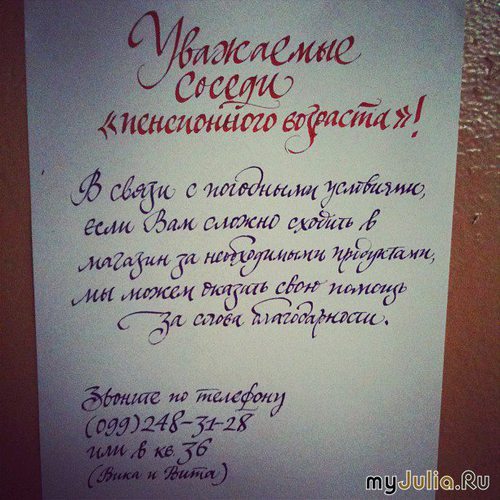 Уважаемые
соседи
«пенсионного возраста»!
В связи с погодными условиями,
если Вам сложно сходить в
магазин за необходимыми продуктами,
мы можем оказать свою помощь
за слова благодарности.
Звоните по телефону
(099)248-31-28
или в кв 36
(Вика и Вита)
myJulia.Ru